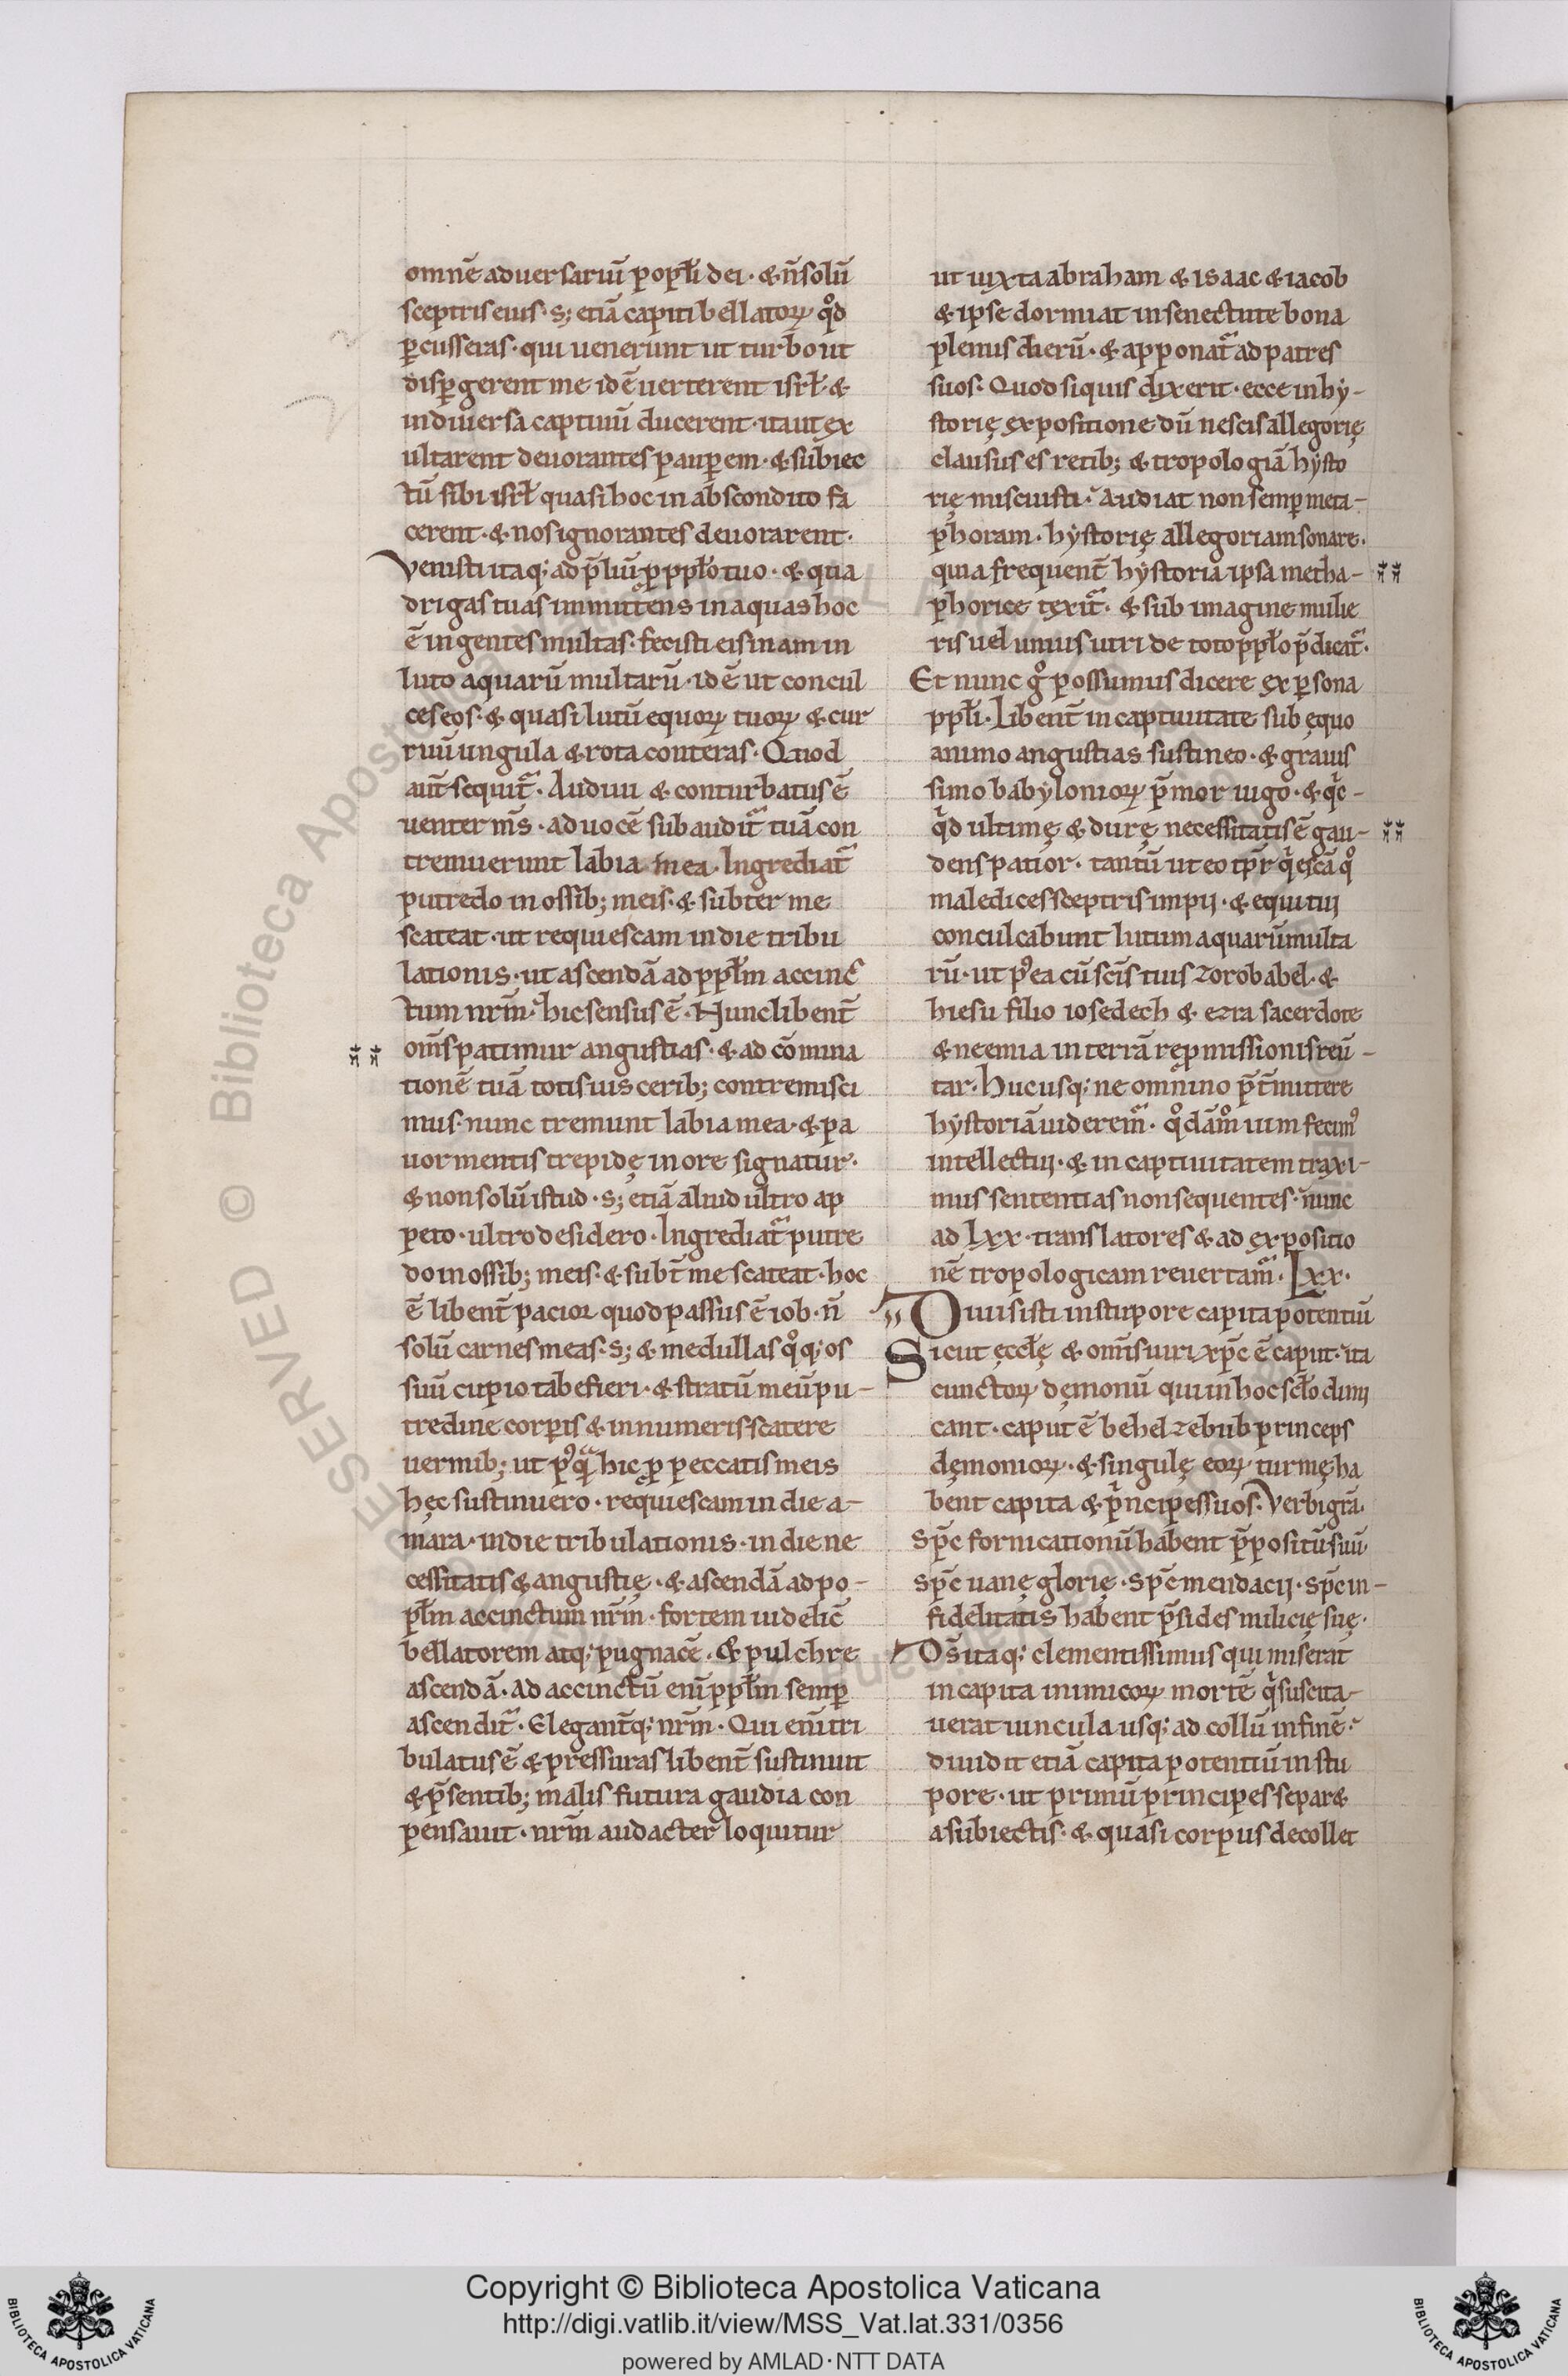 omnē aduersariū popłi dei · & n̄ solū
sceptris eius · s; etiā capiti bellatoꝝ qd̊
ꝑcusseras · qui uenerunt ut turbo ut
disꝑgerent me id ē uerterent isrł · &
in diuersa captiuū ducerent · ita ut ex
ultarent deuorantes pauꝑem · & subiec
tū sibi isrł quasi hoc in abscondito fa
cerent · & nos ignorantes deuorarent ·
Venisti itaq; ad p̄liū ꝓ ppło tuo · & qua
drigas tuas inmittens in aquas hoc
ē in gentes multas · fecisti eis uiam in
luto aquarū multarū · id ē ut concul
ces eos · & quasi lutū equoꝝ tuoꝝ & cur
ruū ungula & rota conteras · Quod
aut̄ sequit᷑ · Audiui & conturbatus ē
uenter ms̄ · ad uocē subaudit᷑ tuā con
tremuerunt labia mea · Ingrediat᷑
putredo in ossib; meis · & subter me
scateat · ut requiescam in die tribu
lationis · ut ascendā ad ppłm accinc
tum nrm̄ · hic sensus ē · Nunc libent̄
oms̄ patimur angustias · & ad cōmina
tionē tuā totis uiscerib; contremisci
mus · nunc tremunt labia mea · & pa
uor mentis trepidę in ore signatur ·
& non solū istud · s; etiā aliud ultro ap
peto · ultro desidero · Ingrediat᷑ putre
do in ossib; meis · & subt̄ me scateat · hoc
ē libent̄ pacior quod passus ē iob · n̄
solū carnes meas · s; & medullas qͦq; os
suū cupio tabefieri · & stratū meū pu-
tredine corꝑis & innumeris scatere
uermib; ut p᷒qͣ hic ꝓ peccatis meis
hęc sustinuero · requiescam in die a-
mara · in die tribulationis · in die ne
cessitatis & angustię · & ascendā ad po-
płm accinctum nrm̄ · fortem uidelic̄
bellatorem atq; pugnacē · & pulchre
ascendā · Ad accinctū eni᷑ ppłm semꝑ
ascendit᷑ · Elegant̄q; nrm̄ · Qui eni᷑ tri
bulatus ē & pressuras libent̄ sustinuit
& p̄sentib; malis futura gaudia con
pensauit · nrm̄ audacter loquitur
ut iuxta abraham & isaac & iacob
& ipse dormiat in senectute bona
plenus dierū · & apponat᷑ ad patres
suos · Quod si quis dixerit · ecce in hy-
storię expositione dū nescis allegorię
clausus es retib; & tropologiā hysto
rię miscuisti · Audiat non semꝑ meta-
phoram · hystorię allegoriam sonare ·
quia frequent̄ hystoria ipsa metha-
phorice texit᷑ · & sub imagine mulie
ris uel unius uiri de toto ppło p̄dicat᷑ ·
Et nunc gͦ possumus dicere ex ꝑsona
ppłi · Libent̄ in captiuitate sub ęquo
animo angustias sustineo · & grauis
simo babylonioꝝ p̄mor iugo · & qͥc-
qͥd ultimę & durę necessitatis ē gau-
dens patior · tantū ut eo tp̄r qͥescā qͦ
maledices sceptris impij · & equi tui
conculcabunt lutum aquarū multa
rū · ut p᷒ea cū scīs tuis zorobabel · &
hiesu filio iosedech & ezra sacerdote
& neemia in terrā repmissionis reū-
tar · Hucusq; ne omnino p̄t̄mittere
hystoriā uiderem᷑ · qͦdām̊ uim fecim᷒
intellectui · & in captiuitatem traxi-
mus sententias non sequentes · nunc
ad lxx · translatores & ad expositio
nē tropologicam reuertam᷑ · Lxx ·
Diuisisti in stupore capita potentiū
Sicut ęccłę & om̄s uiri xp̄c ē caput · ita
cunctoꝝ dęmonū qui in hoc scło dimi
cant · caput ē behelzebub princeps
dęmonioꝝ · & singulę eoꝝ turmę ha
bent capita & pͥncipes suos · Verbi grā ·
Sp̄c fornicationū habent p̄positū suū ·
sp̄c uanę glorię · sp̄c mendacij · sp̄c in-
fidelitatis habent p̄sides milicię suę ·
Ds̄ itaq; clementissimus qui miserat
in capita inimicoꝝ mortē qͥ suscita-
uerat uincula usq; ad collū in finē ·
diuidit etiā capita potentiū in stu
pore · ut primū principes separ&
a subiectis · & quasi corpus decollet
Copyright © Biblioteca Apostolica Vaticana
http://digi.vatlib.it/view/MSS_Vat.lat.331/0356
powered by AMLAD · NTT DATA
BIBLIOTECA APOSTOLICA VATICANA
BIBLIOTECA APOSTOLICA VATICANA